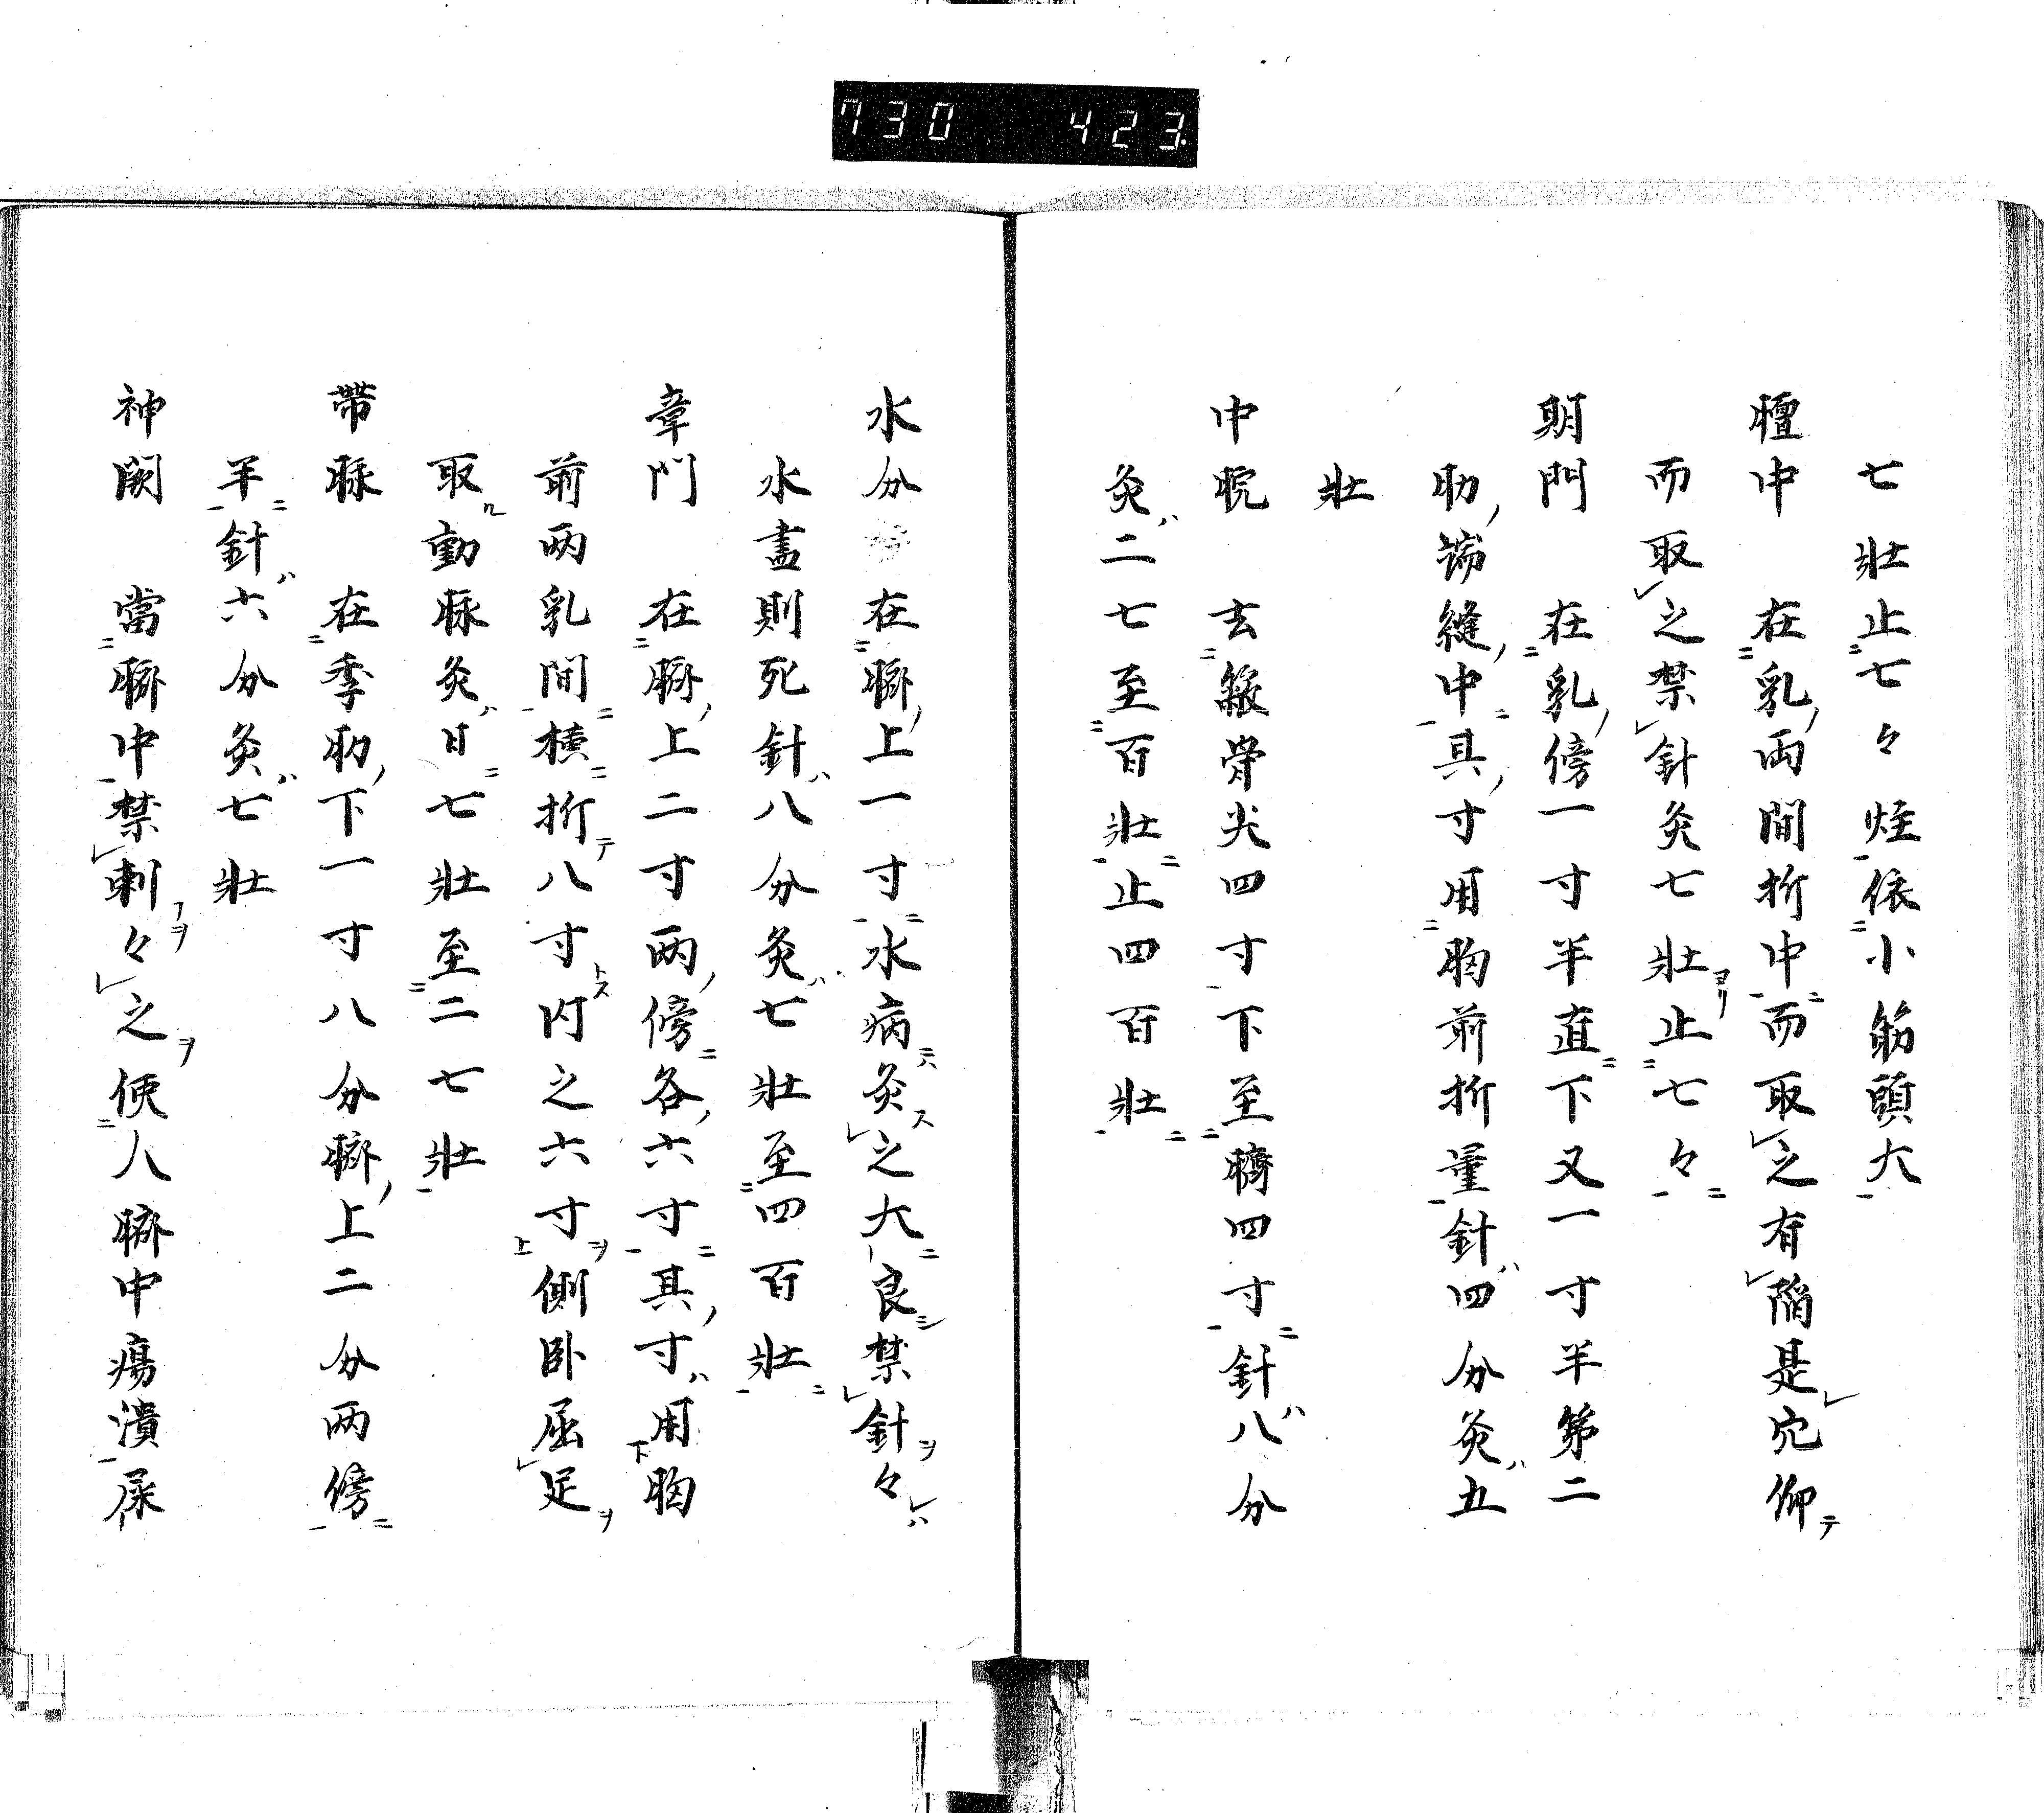 730 423
七壯止七々炷依小筋頭大
膻中 在乳両間折中而取之有陥是穴仰
而取之禁針灸七壯止七々
期門 在乳傍一寸半直下又一寸半第二
肋端縫中其寸用胸前折量針四分灸五
壯
中脘 去䉼骨尖四寸下至臍四寸針八分
灸二七至百壯止四百壯
水分 在臍上一寸水病灸之大良禁針々
水盡則死針八分灸七壯至四百壯
章門 在臍上二寸両傍各六寸其寸用胸
前両乳間横折八寸内之六寸側臥屈足
取動脉灸日七壯至二七壯
帯脉 在季肋下一寸八分臍上二分両傍
半針六分灸七壯
神闕 當臍中禁刺々之使人臍中瘍潰屎